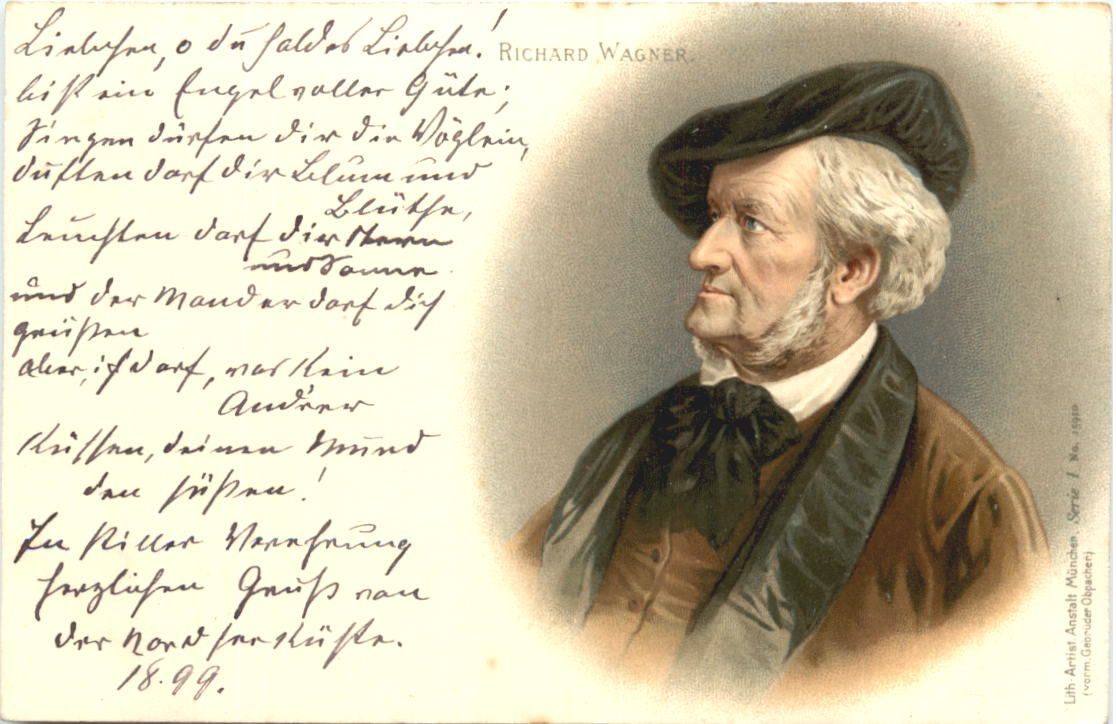 Liebchen, o du holdes Liebchen!
bist ein Engel voller Güte;
Singen dürfen dir die Vöglein,
duften darf dir Blum und
Blüthe,
Leuchten darf dir Stern
und Sonne
und der Mond er darf dich
grüßen
aber, ich darf, was kein
And'rer
Küssen, deinen Mund
den süßen!
In stiller Verehrung
herzlichen Gruß von
der Nordseeküste.
18.99.
RICHARD WAGNER.
Lith.-Artist. Anstalt München Serie I No. 15919
(vorm. Gebrüder Obpacher)